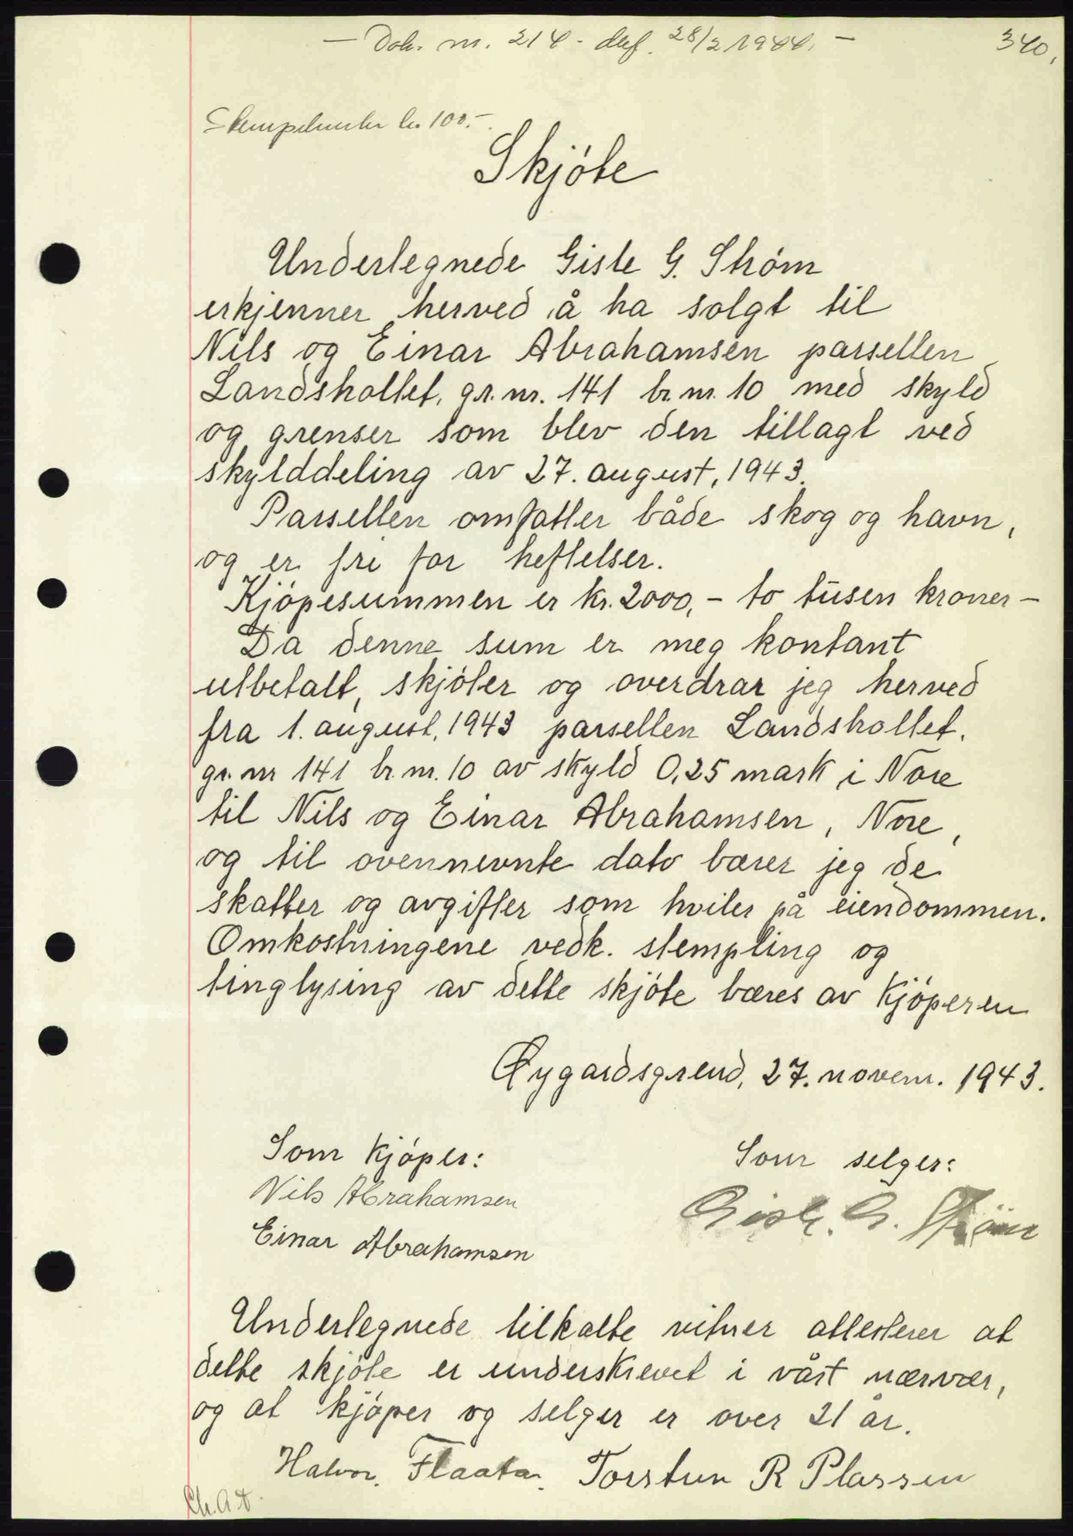 — Dok. nr. 214 - dbf. 28/2 1944. —
340.
Stempelmerke kr. 100.-
Skjöte
Underlegnede Gisle G. Ström
erkjenner herved å ha solgt til
Nils og Einar Abrahamsen parsellen
Landskollet. gr. nr. 141 br. nr. 10 med skyld
og grenser som blev den tillagt ved
skylddeling av 27. august, 1943.
Parsellen omfatter både skog og havn,
og er fri for heftelser.
Kjöpesummen er kr. 2000,- to tusen kroner -
Da denne sum er meg kontant
utbetalt, skjöter og overdrar jeg herved
fra 1. august, 1943 parsellen Landskollet.
gr. nr 141 br. nr. 10 av skyld 0,25 mark i Nore
til Nils og Einar Abrahamsen, Nore,
og til ovennevnte dato bærer jeg de
skatter og avgifter som hviler på eiendommen.
Omkostningene vedk. stempling og
tinglysing av dette skjöte bæres av kjöperen
Øygardsgrend, 27. novem. 1943.
Som kjöper:
Som selger:
Nils Abrahamsen
Gisle. G. Ström
Einar Abrahamsen
Underlegnede tilkalte vitner attesterer at
dette skjöte er underskrevet i vårt nærvær,
og at kjöper og selger er over 21 år.
Halvor. Flaata. Torstein R Plassen